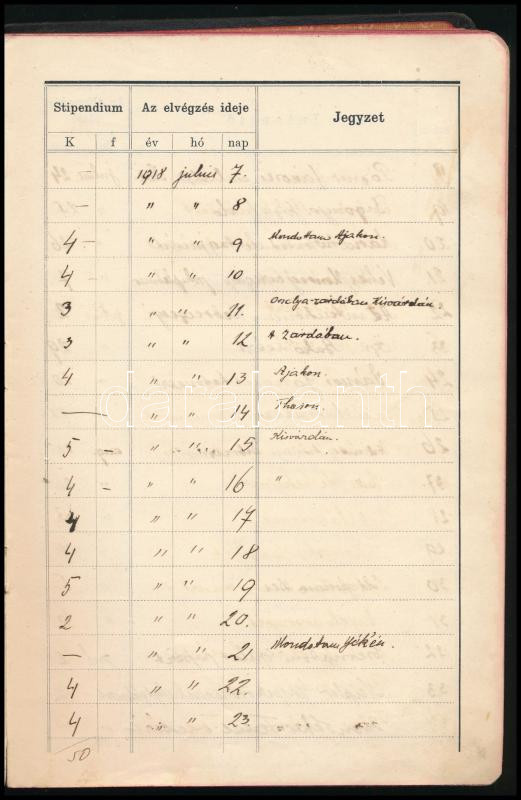 Stipendium Az elvégzés ideje Jegyzet
K f év hó nap
— 1918 julius 7.
— " " 8
4 — " " 9 Mondottam Ajakon.
4 " " 10
3 " " 11. Kisvárdán
3 " " 12 A zardában.
4 " " 13 Ajakon.
— " " 14 Thason.
5 — " " 15 Kisvárdán.
4 — " " 16 "
4 " " 17
4 " " 18
5 " " 19
2 " " 20.
— " " 21 Mondottam Jékén.
4 " " 22.
4 " " 23.
50
darabanth